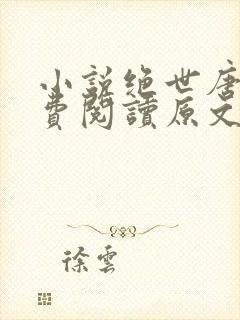 小説绝世唐
費閱讀原文
徐雲